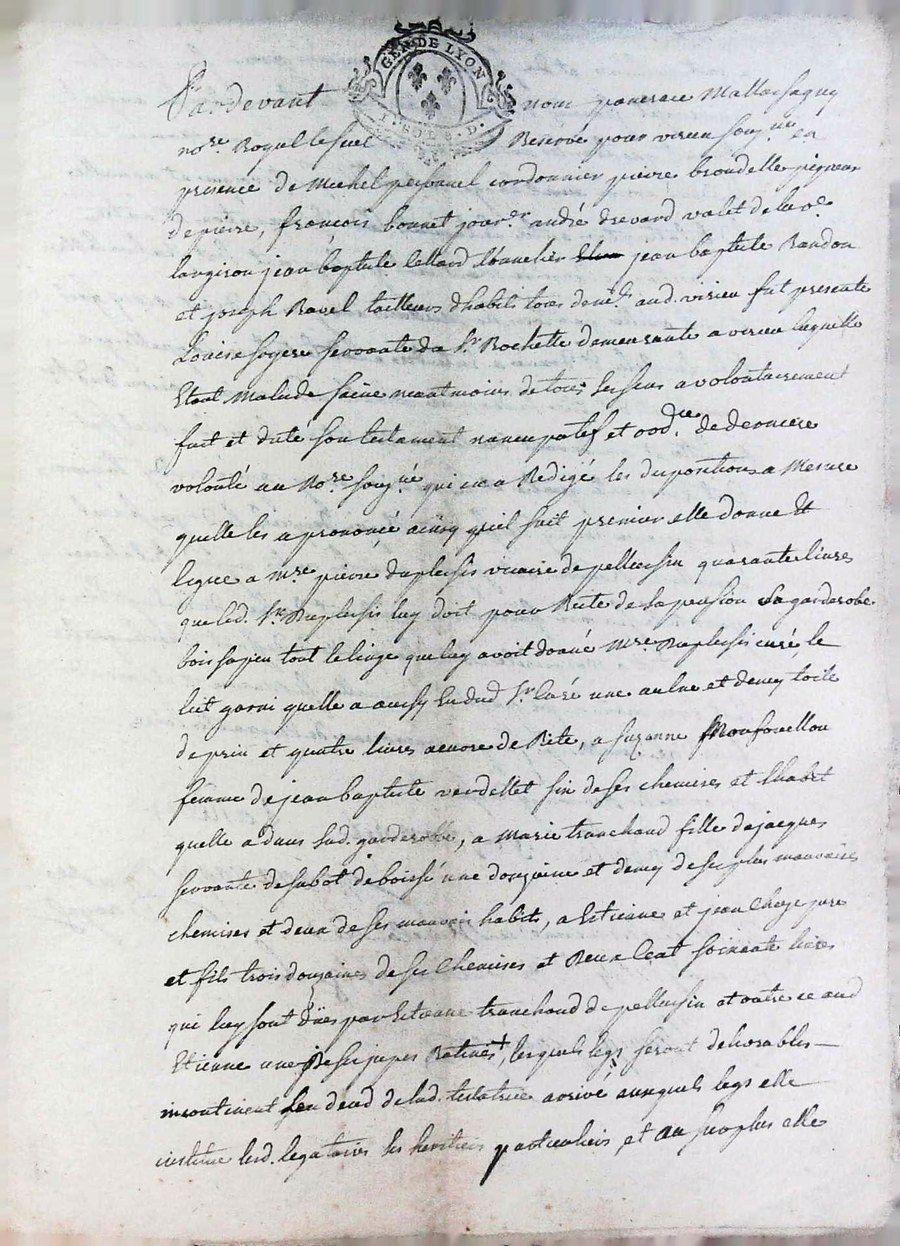 GEN. DE LYON
Pardevant nous pancrace Mattassagny
no.re Royal le seel Reservé pour virieu soug.né en
presence de Michel cordonnier pierre brondelle pigneur
de pierre, françois bonnet jour.er andré drevard valet de la v.e
langiron jean baptiste lettard jean baptiste Randon
et joseph Ravel tailleurs dhabits tous dem.t aud. virieu fut presente
Louise sogere servante du S.r Rochette demeurante a virieu laquelle
Etant Malade saine neantmoins de tous ses sens a volontairement
fait et dicté son testament nuncupatif et ord.re de derniere
volonté au No.re soug.né qui en a Redigé les dispositions a Mesure
quelle les a prononcé ainsy qu'il suit premier elle donne et
legue a m.re pierre duplessis vicaire de pellussin quarante livres
que led. S.r Duplessis luy doit pour Reste de sa pension sa garderobe
bois sapin tout le linge que luy avoit donné m.re Duplessis curé, le
lict garni quelle a aussy eu dud S.r Curé une aulne et demy toile
de prin et quatre livres de Rite, a suzanne Monfouillou
femme de jean baptiste verdellet six de ses chemises et lhabit
quelle a dans sad. garderobbe, a Marie tranchand fille de jacques
servante de sabot de boissé une douzaine et demy de ses plus mauvaises
chemises et deux de ses mauvais habits, a Estienne et jean Cheze pere
et fils trois douzaines de ses Chemises et Deux Cent soixante livres
qui luy sont Dües par Estienne tranchand de pellussin et outre ce aud
Etienne une de ses jupes Ratines +, lesquels legs seront delivrables
incontinent le deced de lad. testatrice arrivé auxquels legs elle
institue lesd. legataires ses heritiers particuliers, et au surplus elle